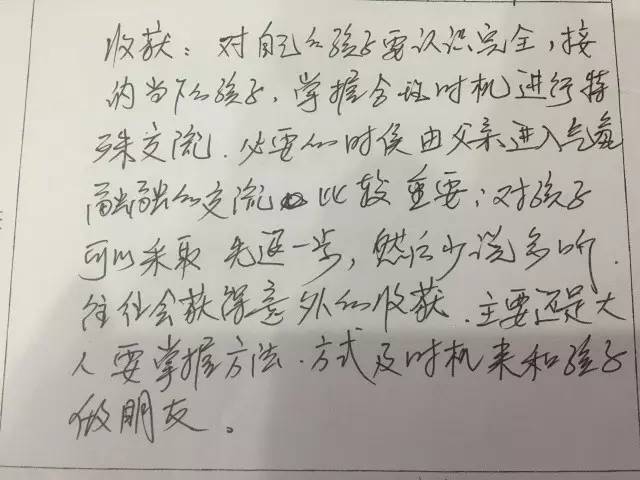 收获：对自己的孩子要认识完全，接
纳当下的孩子，掌握合理时机进行特
殊交流．必要的时候由父亲进入气氛
融融的交流 比较重要；对孩子
可以采取 先退一步，然后少说多听．
往往会获得意外的收获．主要还是大
人要掌握方法．方式及时机来和孩子
做朋友。